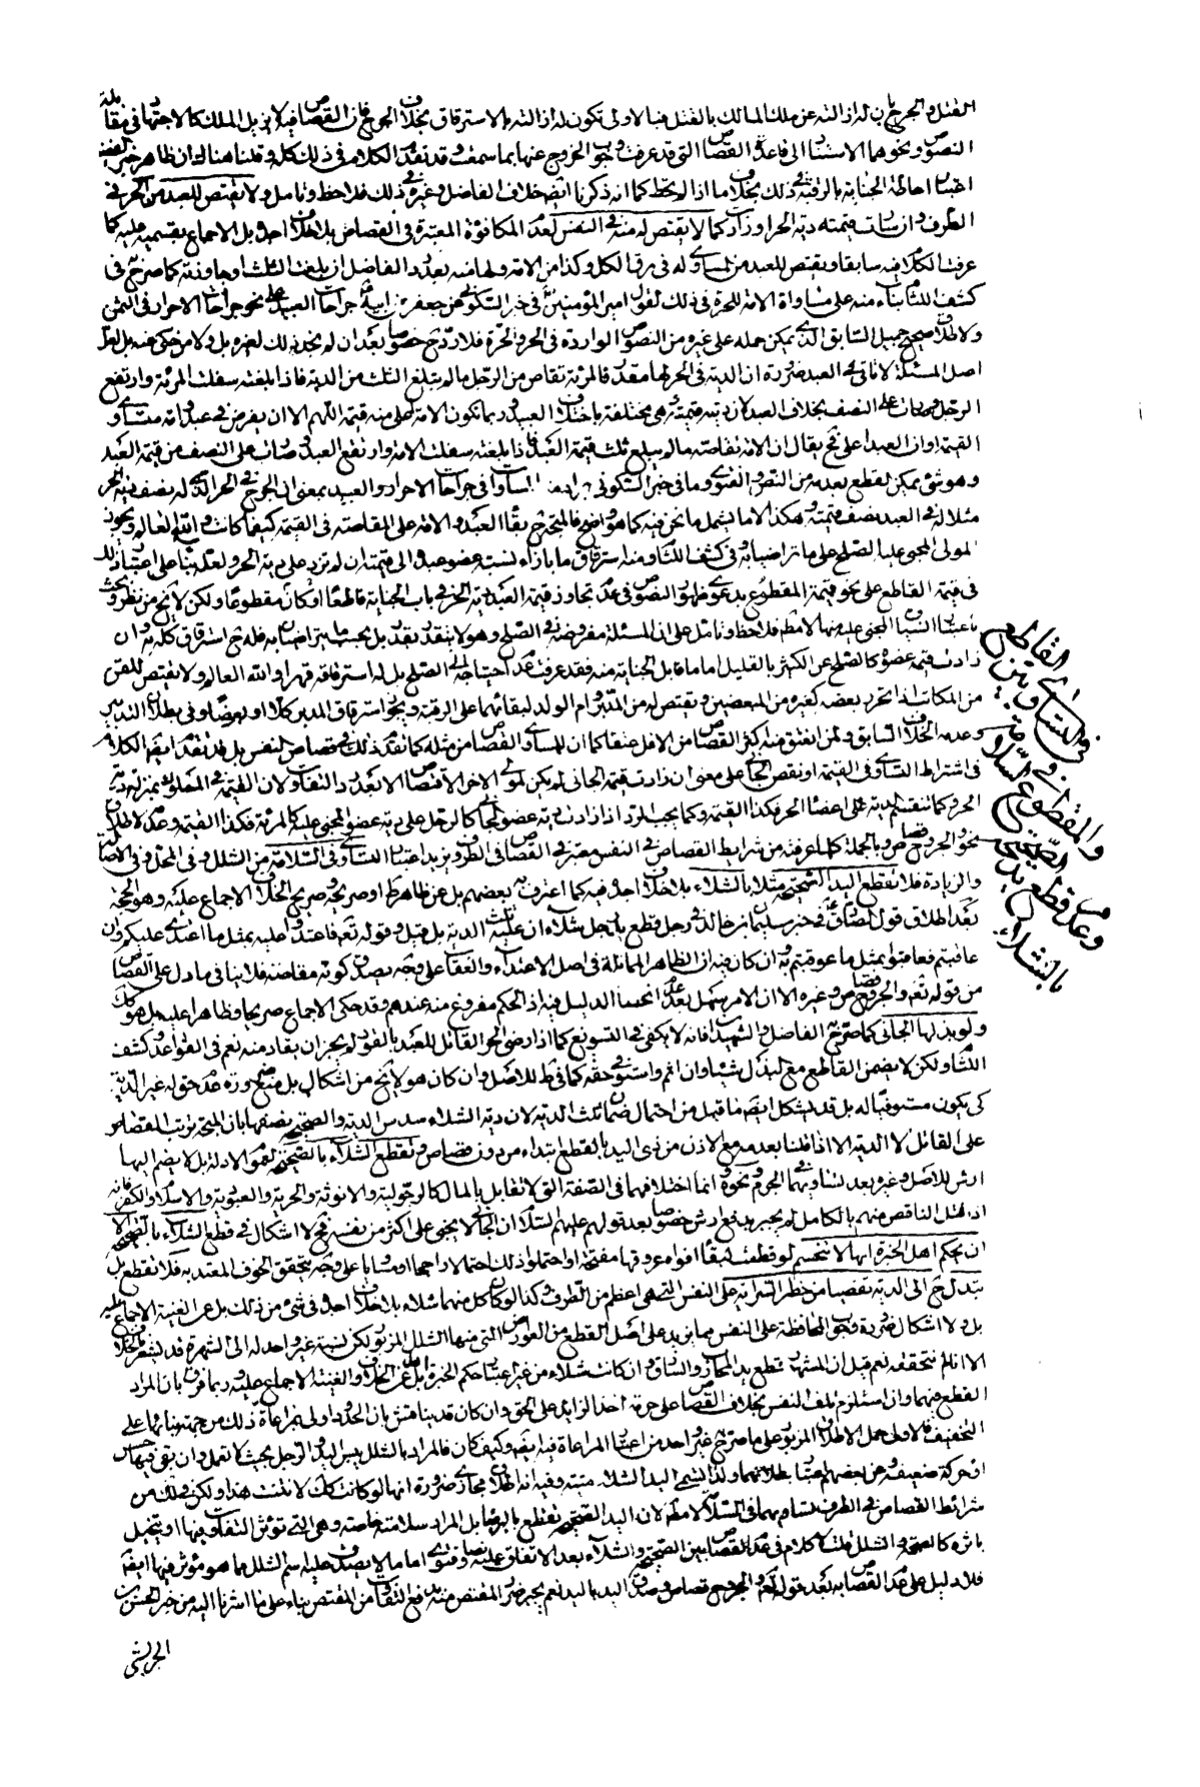 القتل والجرح بان له ازالته عن ملك المالك بالقتل فبالاولى تكون له ازالته بالاسترقاق بخلاف الجرح فان القصاص فيه لا يزيل الملك كالاجتهاد في مقابلة
النصوص ونحوهما الاستناد الى قاعدة القصاص التي قد عرفت وجوب الخروج عنها بما سمعت وقد تقدم الكلام في ذلك كله وقلنا هناك ان ظاهر خبر الفضيل
اعتبار احاطة الجناية بالرقبة في ذلك بخلاف ما اذا لم تحط كما انه ذكرنا ايضا خلاف الفاضل وغيره في ذلك فلاحظ وتامل ولا يقتص للعبد من الحر في
الطرف وان ساوت قيمته دية الحر او زادت كما لا يقتص له منه في النفس لعدم المكافوة المعتبرة في القصاص بلا خلاف اجده بل الاجماع بقسميه عليه كما
عرفت الكلام فيه سابقا ويقتص للعبد من المساوي له في رق الكل وكذا من الامة ولها منه بعد رد الفاضل ان بلغت الثلث او جاوزته كما صرح به في
كشف اللثام بناء منه على مساواة الامة للحرة في ذلك لقول امير المؤمنين في خبر السكوني عن جعفر عن ابيه جراحات العبيد على نحو جراحات الاحرار في الثمن
ولاطلاق صحيح جميل السابق الذي يمكن حمله على غيره من النصوص الواردة في الحر والحرة فلا رد ح خصوصا بعد ان لم نجد ذلك لغيره بل ولا من حكى عنه بل لعل
اصل المسئلة لا تاتي في العبد ضرورة ان الدية في الحر لها مقدر فالمرئة تقاص من الرجل ما لم تبلغ الثلث من الدية فاذا بلغته سفلت المرئة وارتفع
الرجل وصارت على النصف بخلاف العبد لان ديته قيمته وهي مختلفة باختلاف العبيد وربما تكون الامة اعلى منه قيمة اللهم الا ان يفرض في عبد وامة متساوي
القيمة او ان العبد اعلى فح يقال ان الامة تقاصه ما لم يبلغ ثلث قيمة العبد فاذا بلغته سفلت الامة وارتفع العبد وصارت على النصف من قيمة العبد
وهو شئ يمكن القطع بعدمه من النص والفتوى وما في خبر السكوني المساوات في جراحات الاحرار والعبيد بمعنى ان الجرح في الحر الذي له نصف دية الحر
مثلا له في العبد نصف قيمته وهكذا لا ما يشمل ما نحن فيه كما هو واضح فالمتجه ح بقاء العبد والامة على المقاصة في القيمة كيفما كانت والله العالم ويجوز
لمولى المجنى عليه الصلح على ما تراضيا به وفي كشف اللثام وله منه استرقاق ما بازاء نسبة عضو عبده الى قيمته ان لم تزد على دية الحر ولعله بناء على اعتبار ذلك
في قيمة القاطع على نحو قيمة المقطوع بدعوى ظهور النصوص في عدم تجاوز قيمة العبد دية الحر في باب الجناية قاطعا او كان مقطوعا ولكن لا يخ من نظر وبحث
باعتبار انسياق المجنى عليه منها لا مطلقا فلاحظ وتامل على ان المسئلة مفروضة في الصلح وهو لا يتقدر بقدر بل بحسب ما يتراضيان به فله ح استرقاق كله به وان
زادت قيمة عضوه كالصلح عن الكثير بالقليل اما ما قابل الجناية منه فقد عرفت عدم احتياجه الى الصلح بل له استرقاقه قهرا والله العالم ولا يقتص للقن
من المكاتب اذا تحرر بعضه كغيره من المبعضين ويقتص له من المدبر وام الولد لبقائهما على الرقية ويجوز استرقاق المدبر كلا او بعضا وفي بطلان التدبير
وعدمه الخلاف السابق ولمن انعتق منه اكثر القصاص من الاقل عتقا كما ان للمساوي القصاص من مثله كما تقدم ذلك في قصاص النفس بل قد تقدم ايضا الكلام
في اشتراط التساوي في القيمة او نقص الجاني على معنى ان زادت قيمة الجاني لم يكن لمولى الاخر الاقتصاص الا بعد رد التفاوت لان القيمة في المملوك بمنزلة دية
الحر فكما تنقسم الدية على اعضاء الحر فكذا القيمة وكما يجب الرد اذا زادت دية عضو الجاني كالرجل على دية عضو المجنى عليه كالمرئة فكذا القيمة وعدمه لاطلاق
نحو الجروح قصاص وبالجملة كلما عرفته من شرايط القصاص في النفس معتبر في القصاص في الطرف ويزيد اعتبار التساوي في السلامة من الشلل وفي المحل وفي الاصالة
والزيادة فلا تقطع اليد الصحيحة مثلا بالشلاء بلا خلاف اجده فيه كما اعترف به بعضهم بل عن ظاهر ط او صريحه وصريح الخلاف الاجماع عليه وهو الحجة
بعد اطلاق قول الصادق في خبر سليمان بن خالد في رجل قطع يد رجل شلاء ان عليه ثلث الدية بل قيل وقوله تعم فاعتدوا عليه بمثل ما اعتدى عليكم وان
عاقبتم فعاقبوا بمثل ما عوقبتم به وان كان فيه ان الظاهر المماثلة في اصل الاعتداء والعقاب على وجه يصدق كونه مقاصة فلا ينافي ما دل على القصاص
من قوله تعم والجروح قصاص وغيره الا ان الامر سهل بعد عدم انحصار الدليل فيه اذ الحكم مفروغ منه عندهم وقد حكى الاجماع صريحا وظاهرا عليه بل هو كك
ولو بذلها الجاني كما صرح به الفاضل والشهيدان فانه لا يكفي في التسويغ كما اذا رضى الحر القاتل للعبد بالقود لم يجز ان يقاد منه نعم في القواعد وكشف
اللثام ولكن لا يضمن القاطع مع البذل شيئا وان اثم واستوفى حقه كما في ط للاصل وان كان هو لا يخ من اشكال بل منع ضرورة عدم حق له غير الدية
كي يكون مستوفيا له بل قد يشكل ايضا ما قيل من احتمال ضمان ثلث الدية لان دية الشلاء سدس الدية والصحيحة نصفها بان المتجه ترتب القصاص
على القاتل لا الدية الا اذا قلنا بعدمه مع الاذن من ذي اليد بالقطع ابتداء من دون قصاص وتقطع الشلاء بالصحيحة لعموم الادلة بل لا يضم اليها
ارش للاصل وغيره بعد تساويهما في الجرم ونحوه وانما اختلافهما في الصفة التي لا تقابل بالمال كالرجولية والانوثة والحرية والعبودية والاسلام والكفر فانه
اذا قتل الناقص منهم بالكامل لم يجبر بدفع ارش خصوصا بعد قولهم عليهم السلام ان الجاني لا يجنى على اكثر من نفسه فح لا اشكال في قطع الشلاء بالصحيحة الا
ان يحكم اهل الخبرة انها لا تنحسم لو قطعت لبقاء افواه عروقها مفتحة او احتملوا ذلك احتمالا راجحا او مساويا على وجه يتحقق الخوف المعتد به فلا تقطع بل
يعدل ح الى الدية تقصيا من خطر السراية على النفس التي هي اعظم من الطرف وكذا لو كان كل منهما شلاء بلا خلاف اجده في شئ من ذلك بل عن الغنية الاجماع عليه
بل ولا اشكال ضرورة وجوب المحافظة على النفس مما يزيد على اصل القطع من العوارض التي منها الشلل المزبور لكن نسبة غير واحد له الى الشهرة قد يشعر بالخلاف
الا انا لم نتحققه نعم قيل ان المشهور قطع يد المحارب والسارق وان كانت شلاء من غير اعتبار حكم الخبرة بل عن الخلاف والغنية الاجماع عليه وربما فرق بان المراد
القطع فيهما وان استلزم تلف النفس بخلاف القصاص على حرمة اخذ الزايد على الحق وان كان قد يناقش بان الحدود اولى بمراعاة ذلك من جهة بنائها على
التخفيف فالاولى حمل الاطلاق المزبور على ما صرح به غير واحد من اعتبار المراعاة فيه ايضا وكيف كان فالمراد بالشلل يبس اليد والرجل بحيث لا تعمل وان بقى فيها حس
او حركة ضعيفة وعن بعضهم اعتبار بطلانهما ولذا تسمى اليد الشلاء ميتة وفيه انه اطلاق مجازي ضرورة انها لو كانت كك لانتنت هذا ولكن في ذلك من
شرائط القصاص في الطرف تساويهما في السلامة لا مطلقا لان اليد الصحيحة تقطع بالبرصاء بل المراد سلامة خاصة وهي التي تؤثر التفاوت فيها او يتخيل
تاثره كالصحة والشلل قلت لا كلام في عدم القصاص بين الصحيحة والشلاء بعد الاتفاق عليه نصا وفتوى اما ما لا يصدق عليه اسم الشلل مما هو مؤثر فيها ايضا
فلا دليل على عدم القصاص به بعد قوله تعم والجروح قصاص وصدق اليد باليد نعم يجبر ضرر المقتص منه بدفع التفاوت من المقتص بناء على ما اشرنا اليه من خبر الحسن بن
الحريش
في التساوي القاطع
والمقطوع في السلامة
وعدم قطع يد الصحيح
بالشلاء